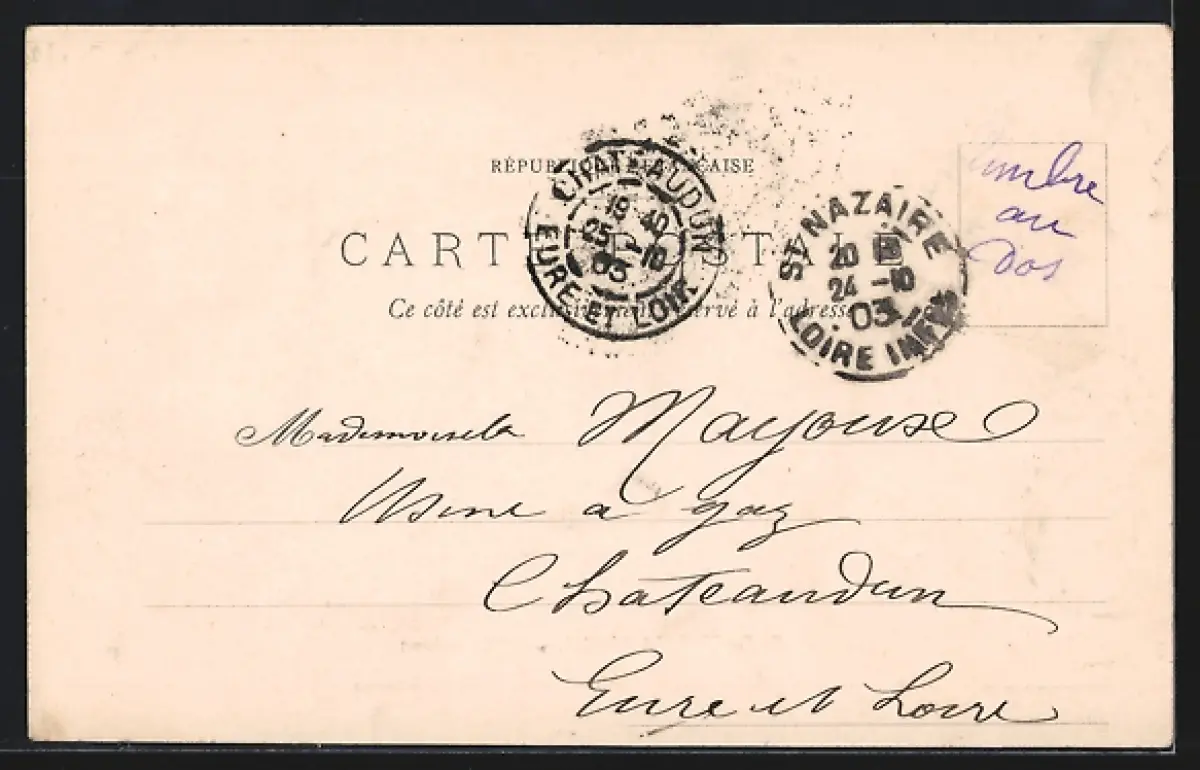 RÉPUBLIQUE FRANÇAISE
CARTE POSTALE
Ce côté est exclusivement réservé à l'adresse
CHATEAUDUN
25 -10
03
EURE-ET-LOIR
ST NAZAIRE
20
24 -10
03
LOIRE INFRE
timbre
au
dos
Mademoiselle Mayouse
Usine a gaz
Chateaudun
Eure et Loire